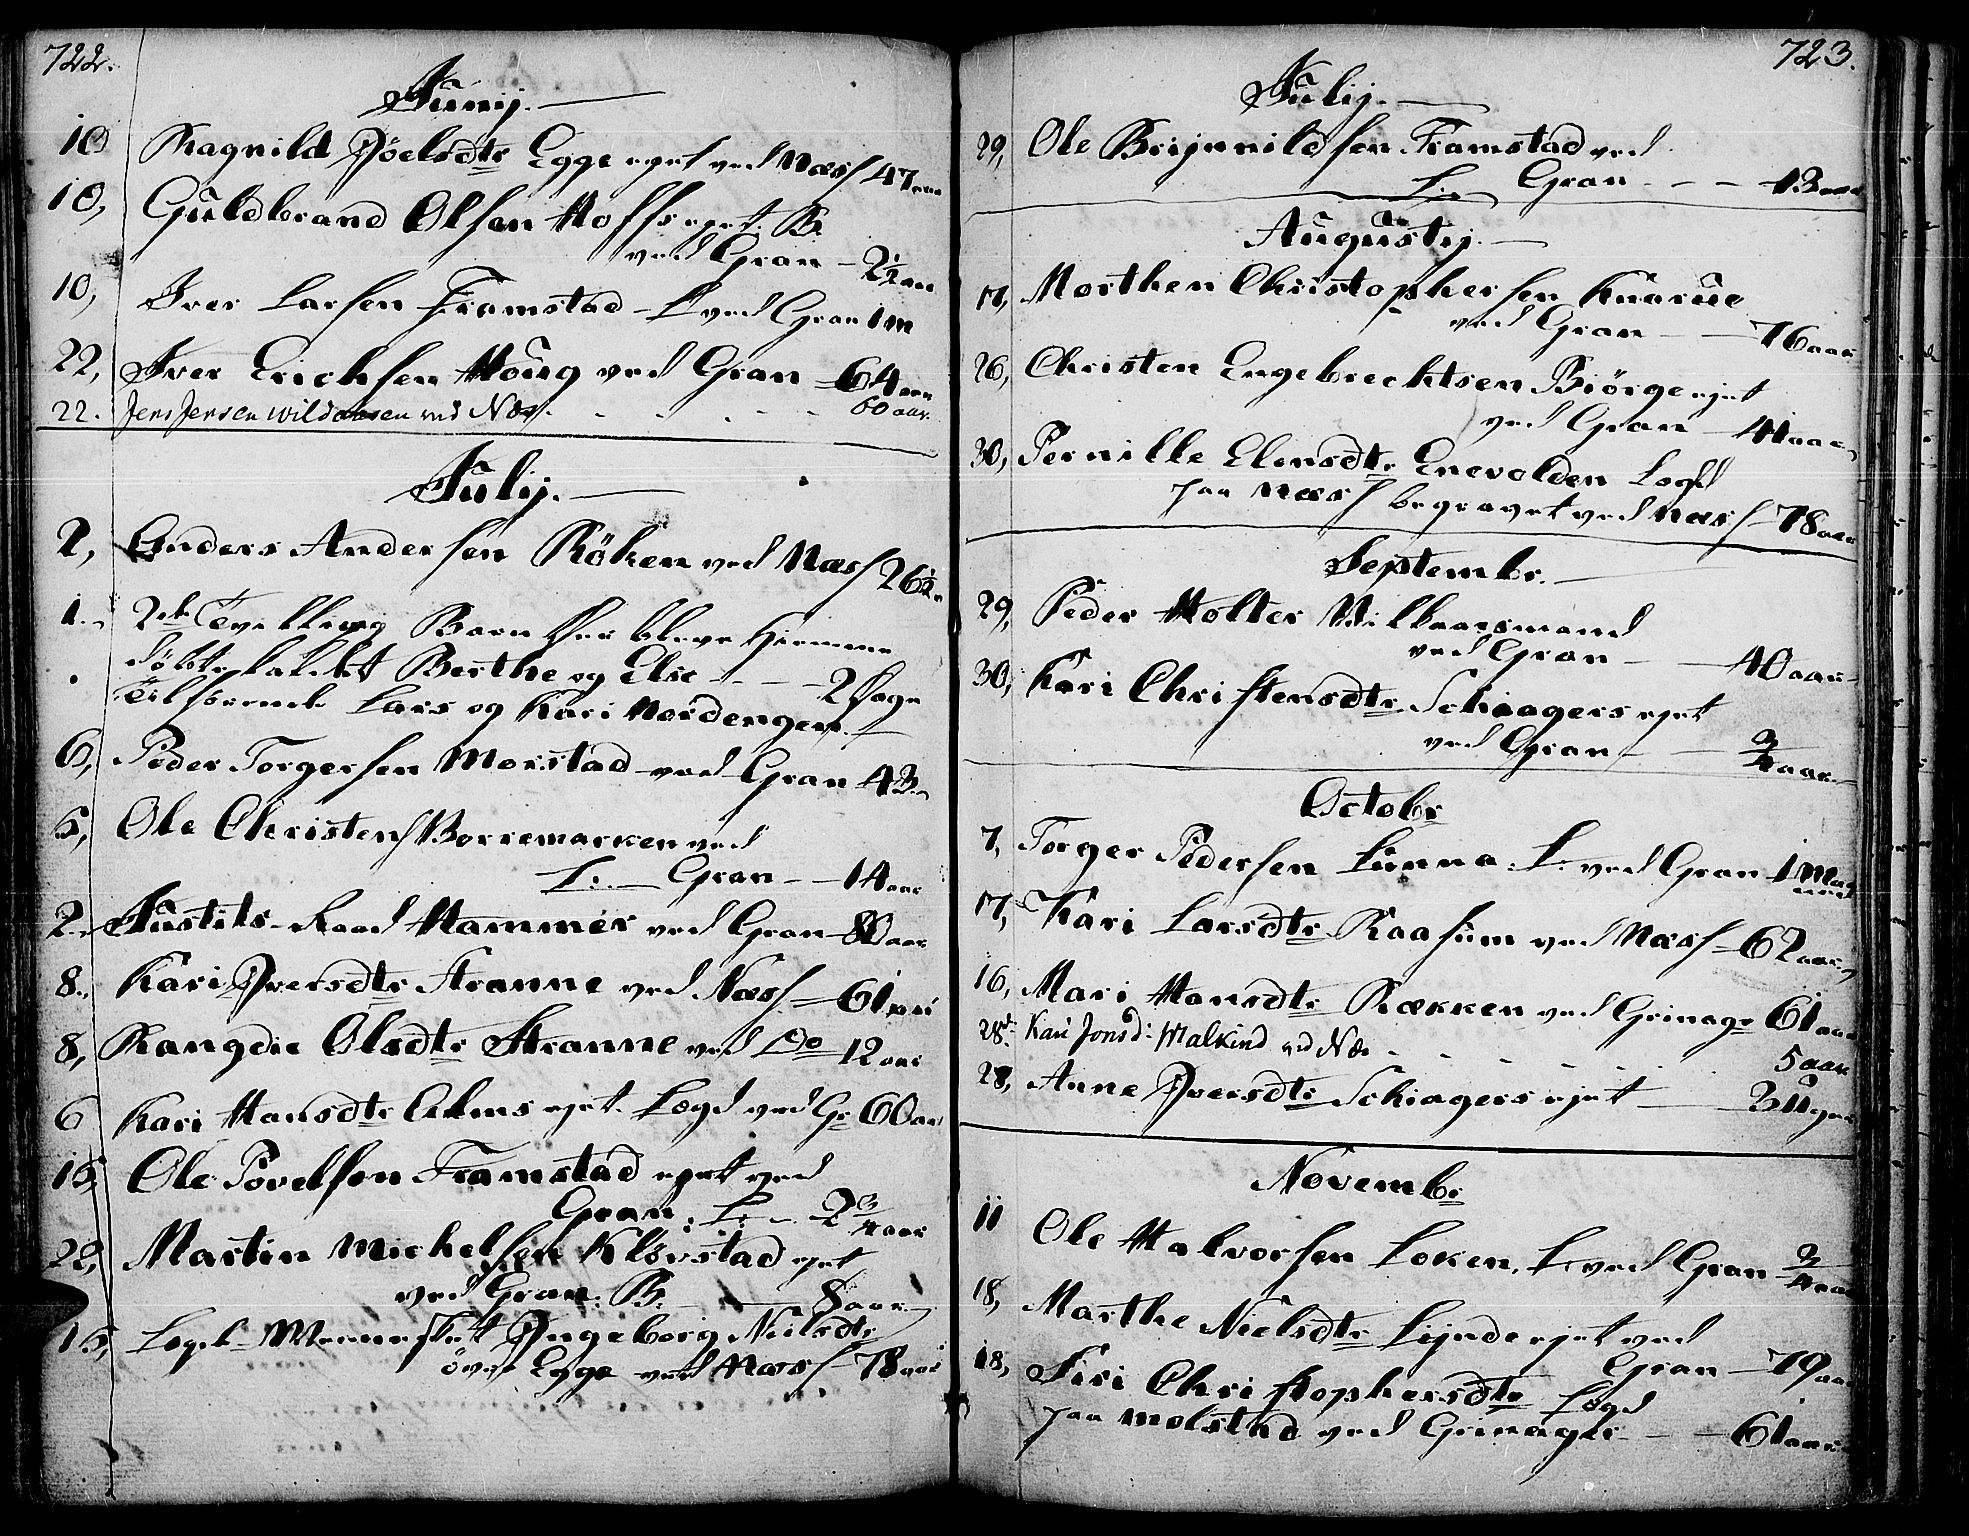 722.
Junij.
10 Ragnild Jöelsdtr Egge ejet ved Næss 47 aar
10, Guldbrand Olsen Hoffs ejet. B.
ved Gran - 2½ aar
10, Iver Larsen Framstad - L ved Gran 1 m
22, Iver Erichsen Houg ved Gran - 64 aar
22. Jens Jensen Wildaasen ved Næs. 60 aar.
Julij.
2, Anders Andersen Röken ved Næss 26½
1. 2de Tvilling Børn der bleve hiemme
döbte kaldet Berthe og Else - - - 2 Dage
Lars og Kari Nordengen.
6, Peder Torgersen Morstad ved Gran 43
5, Ole Christens Borremarken ved
L: Gran - - 14 aar
2. Justits-Raad Hammer ved Gran 80 aar
8. Kari Iversdtr Stranne ved Næss. - 61 aar
8, Rangdie Olsdtr Stranne ved Do 12 aar
6 Kari Hansdtr Alms ejet. Lægd ved Gr 60 aar
15, Ole Povelsen Framstad ejet ved
Gran. L: - 2¾ aar
22, Martin Michelsen Klövstad ejet
ved Gran. B. - 8 aar
15, Lægds Menneske Ingeborg Nielsdtr
över Egge ved Næss - 78 aar
723.
Julij.
29, Ole Brijnnildsen Framstad ved
L: Gran - - - 13 aar
Augustij.
17, Morthen Christophersen Knarue
ved Gran - - 76 aar
26, Christen Engebrechtsen Biörge ejet
ved Gran - 41 aar
30, Pernille Elensdtr Enevolden Lægd
paa Næss begravet ved Næss - 78 aar
Septembr.
29, Peder Holter Vilkaarsmand
ved Gran - - 40 aar
30, Kari Christensdtr Schiagers ejet
ved Gran - - ¾ aar
Octobr
7, Torger Pedersen Lunna. L: ved Gran 1 Maa
ned
17, Kari Larsdtr Raasum ved Næss - 62 aar
16, Mari Hansdtr Rækken ved Grinager 61 aar
28d: Kari Jonsd: Malkind ved Næs - 5 aar
28, Anne Iversdtr Schiagers ejet - 3 Uger
Novembr
11 Ole Halvorsen Loken. L: ved Gran - ¾ aar
18, Marthe Nielsdtr Lijnde ejet ved
Gran - 79 aar
18, Siri Christophersdtr Lægd
paa Molstad ved Grinager - - 61 aar